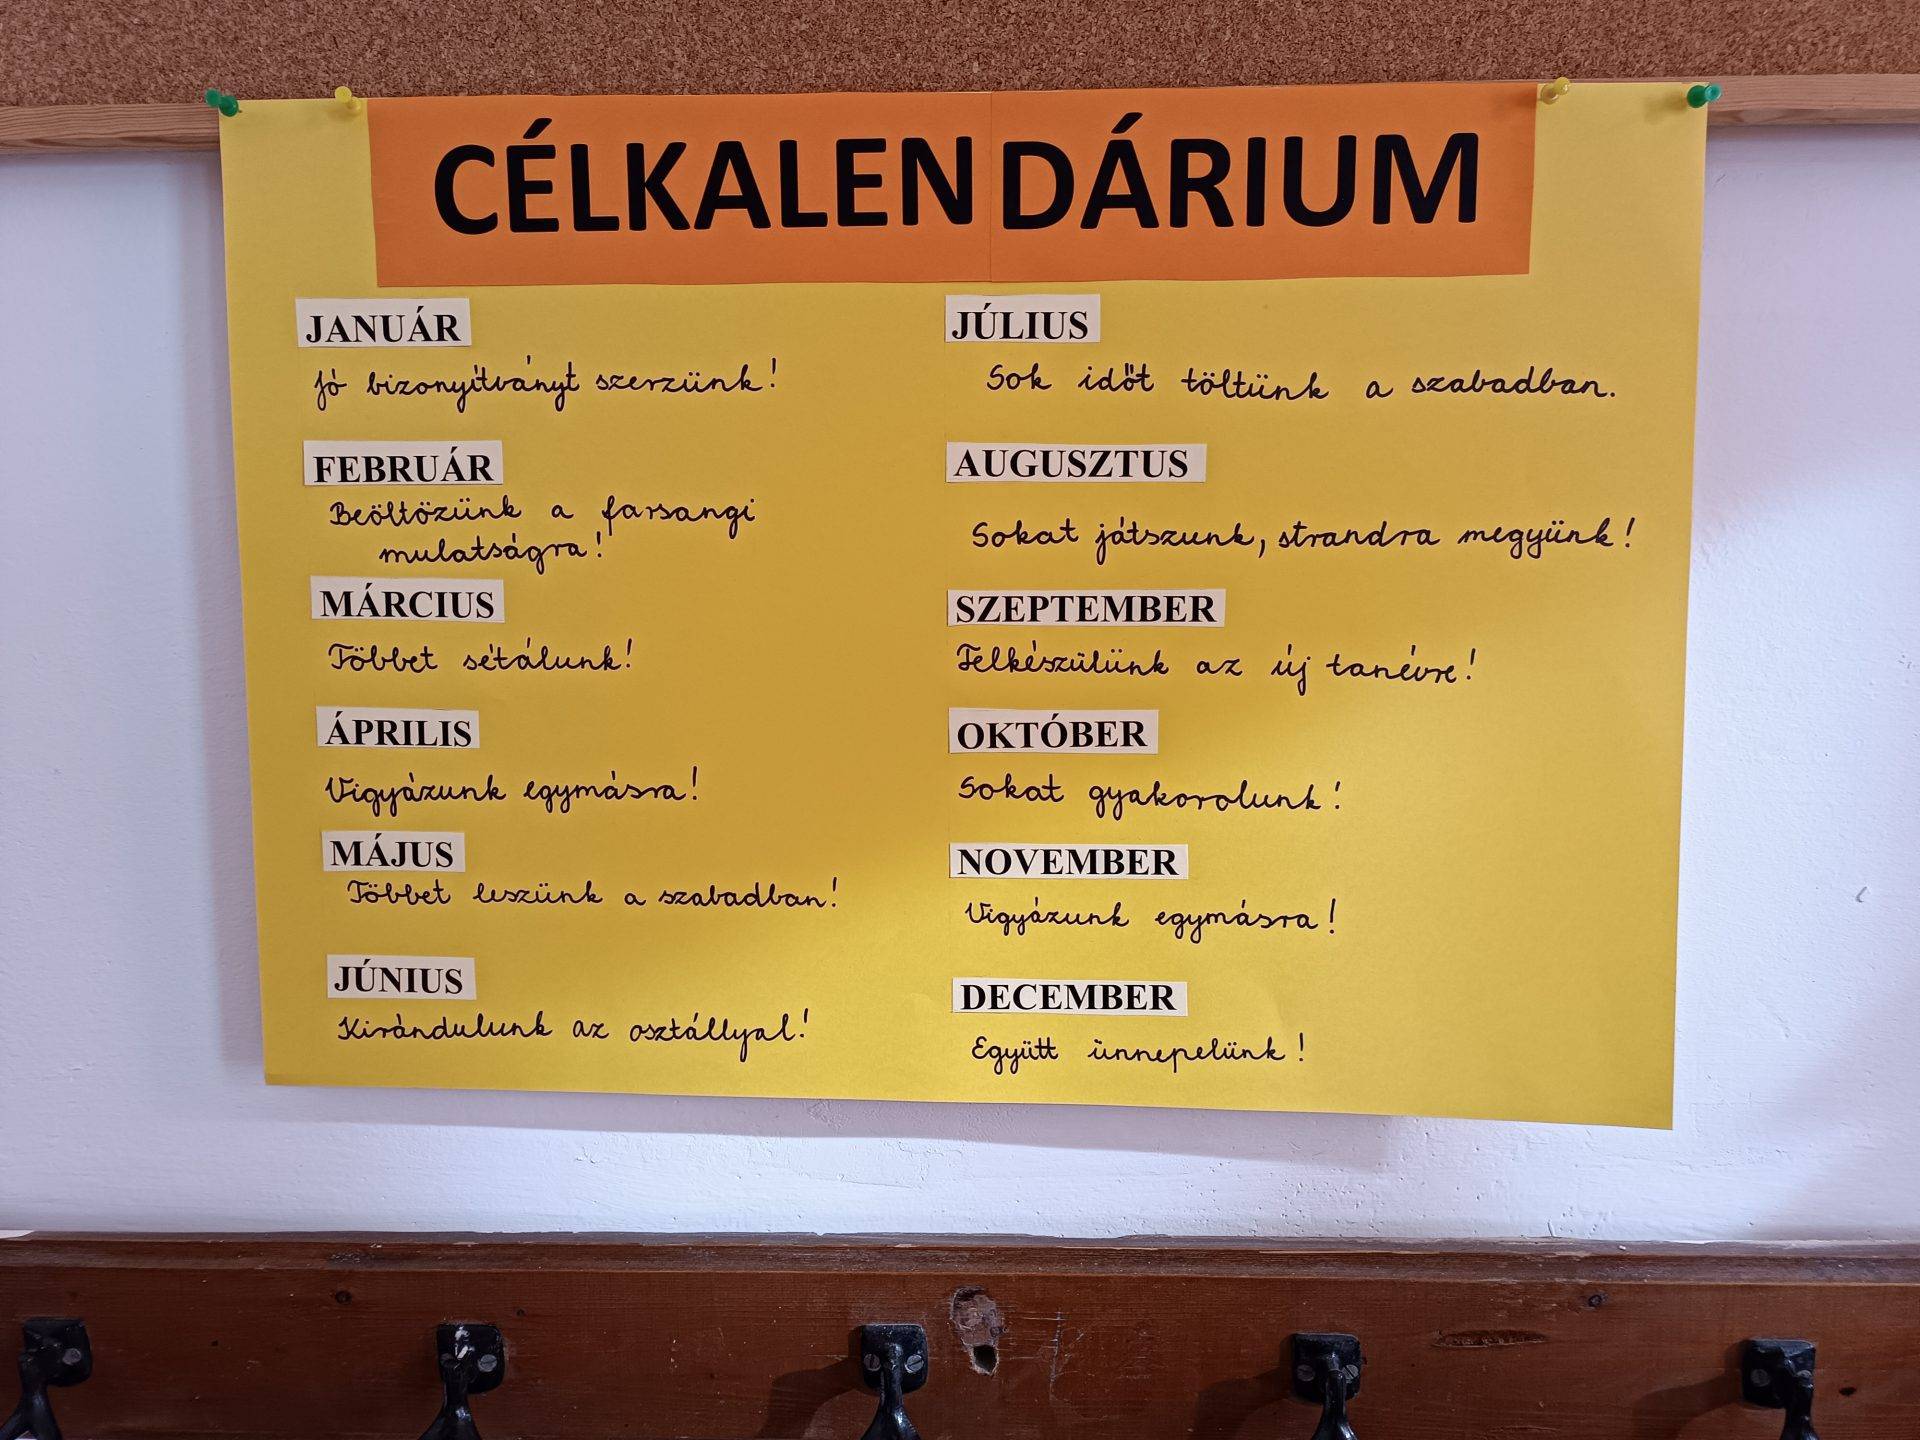 CÉLKALENDÁRIUM
JANUÁR
Jó bizonyítványt szerzünk!
FEBRUÁR
Beöltözünk a farsangi
mulatságra!
MÁRCIUS
Többet sétálunk!
ÁPRILIS
Vigyázunk egymásra!
MÁJUS
Többet leszünk a szabadban!
JÚNIUS
Kirándulunk az osztállyal!
JÚLIUS
Sok időt töltünk a szabadban.
AUGUSZTUS
Sokat játszunk, strandra megyünk!
SZEPTEMBER
Felkészülünk az új tanévre!
OKTÓBER
Sokat gyakorolunk!
NOVEMBER
Vigyázunk egymásra!
DECEMBER
Együtt ünnepelünk!